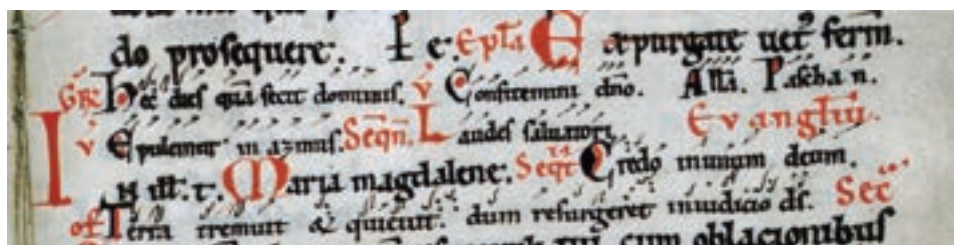 do prosequere. P e: Epła Expurgate uet ferm.
Gr̄ Hec dies quā fecit dominus. v̄ Confitemini dño. Alła. Pascha n.
v̄ Epulemur in azimis. Seqn̄. Laudes saluatori. Euangliū.
In ill. t. Maria magdalene. Seqt̄ Credo in unum deum.
of Terra tremuit & quieuit. dum resurgeret in iudicio ds. Sec̄
cum oblacionibus